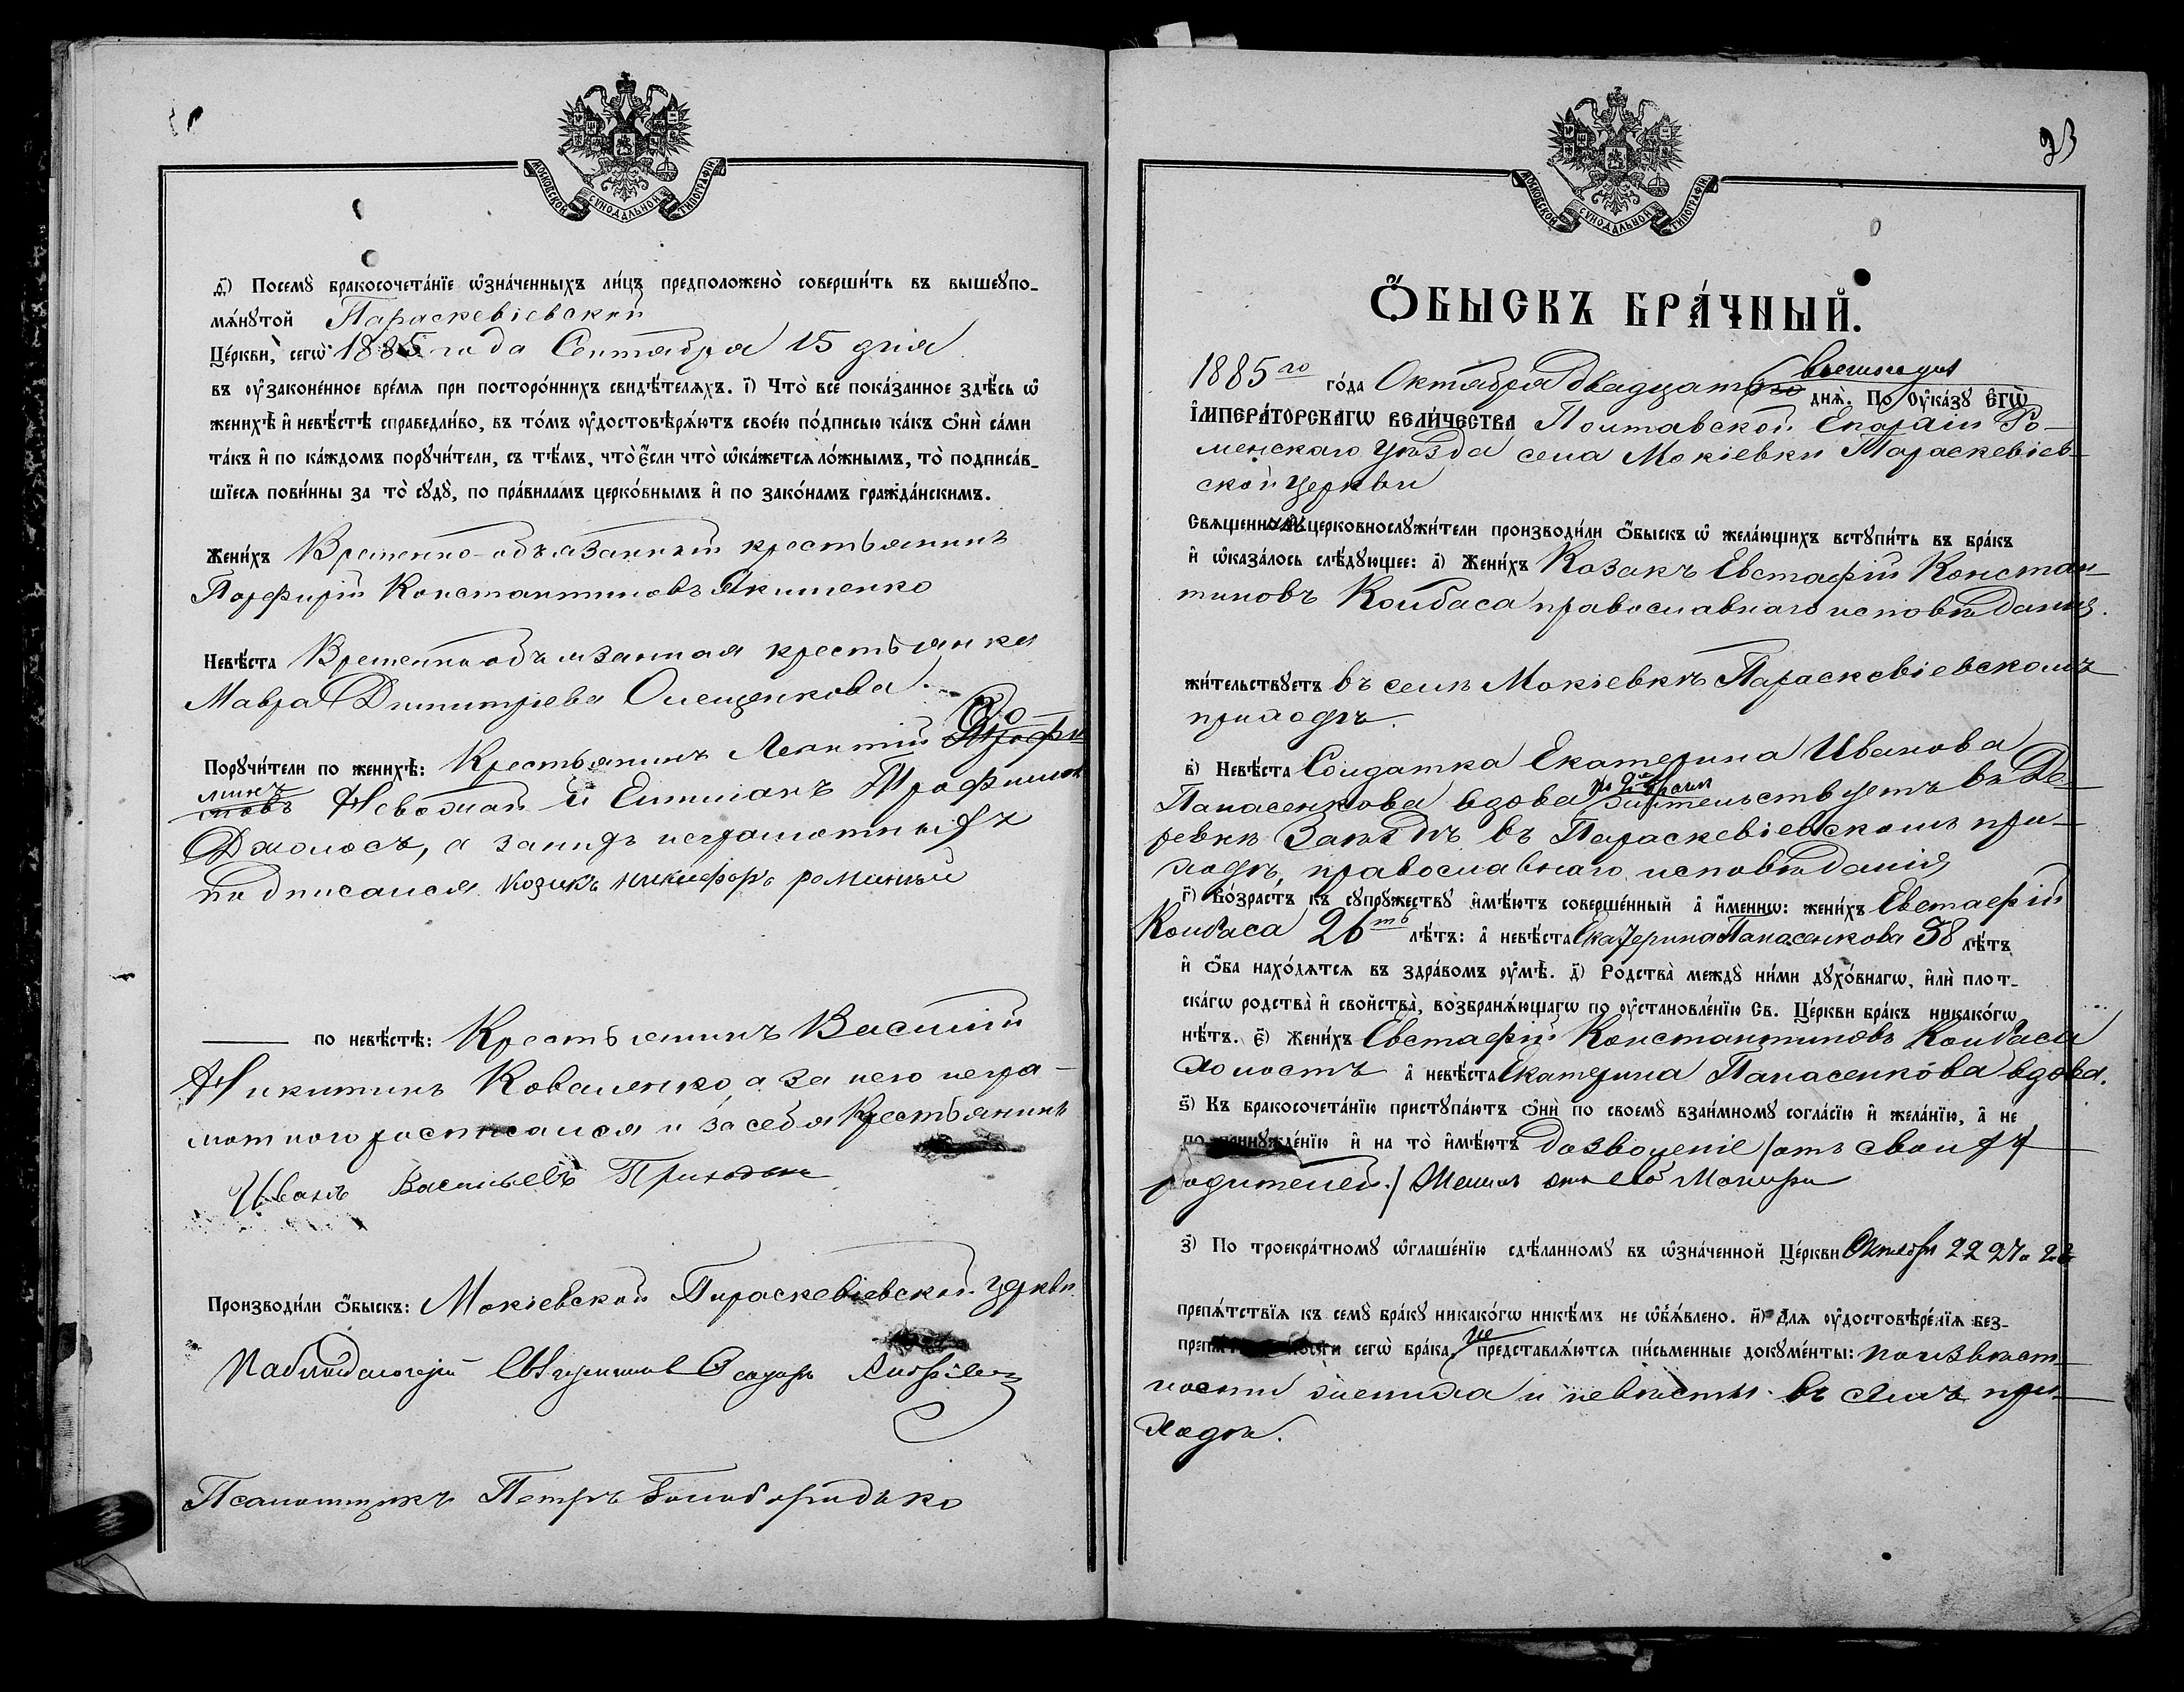 МОСКОВСКОЙ СѴНОДАЛЬНОЙ ТИПОГРАФІИ
д҃) Посемꙋ̀ бракосочета́нїе ѡ҆зна́ченныхъ ли́цъ предположено̀ соверши́ть въ вышеꙋпо-
мѧ́нꙋтой Параскевіевской
Це́ркви, сегѡ̀ 1885 года Сентября 15 дня
въ ᲂу҆законе́нное вре́мѧ при посторо́ннихъ свидѣ́телѧхъ. і҃) Что̀ всѐ пока́занное здѣ́сь ѡ҆
женихѣ̀ и҆ невѣ́стѣ справедли́во, въ то́мъ ᲂу҆достовѣрѧ́ютъ свое́ю по́дписью ка́къ ѻ҆нѝ са́ми
та́къ и҆ по ка́ждомъ порꙋчи́тели, съ тѣ́мъ, что̀ є҆́сли что̀ ѡ҆ка́жетсѧ ло́жнымъ, то̀ подписа́в-
шїесѧ пови́нны за то̀ сꙋдꙋ̀, по пра́виламъ церко́внымъ и҆ по зако́намъ гражда́нскимъ.
Жени́хъ Временно-обязанный крестьянинъ
Порфирій Константиновъ Якименко
Невѣ́ста Временнообязанная крестьянка
Мавра Димитріева Олещенкова.
Порꙋчи́тели по женихѣ̀: Крестьянинъ Леонтій
Неводмай и Емиліанъ Трофимов
Джолосъ, а за нихъ неграмотныхъ
подписался козакъ никифоръ
по невѣ́стѣ: Крестьянинъ Василій
Никитинъ Коваленко, а за него негра-
мотного росписался и за себя Крестьянинъ
Иванъ Васильевъ Приходько
Производи́ли ѻ҆́быскъ: Мокіевской Параскевіевской церкви
Наблюдающій Священникъ
Псаломщикъ Петръ Голобородько
23
МОСКОВСКОЙ СѴНОДАЛЬНОЙ ТИПОГРАФІИ
Ѻ҆БЫСКЪ БРА́ЧНЫЙ.
1885го го́да Октября двадцать восьмого дня дня̀. По Оу҆ка́зꙋ Є҆гѡ̀
І҆МПЕРА́ТОРСКАГѠ ВЕЛИ́ЧЕСТВА Полтавской Епархіи Ро-
менскаго уѣзда села Мокіевки Параскевіев-
ской церкви
Свѧщенно церковнослꙋжи́тели производи́ли ѻ҆́быскъ ѡ҆ жела́ющихъ встꙋпи́ть въ бра́къ
и҆ ѡ҆каза́лось слѣ́дꙋющее: а҃) Жени́хъ Козакъ Евстафій Констан-
тиновъ Колбаса православнаго исповѣданія.
жи́тельствꙋетъ въ селѣ Мокіевкѣ Параскевіевскомъ
приходѣ.
в҃) Невѣ́ста Солдатка Екатерина Иванова
Панасенкова вдова жительствуетъ въ Де-
ревкѣ Заѣздъ въ Параскевіевскомъ при-
ходѣ, православнаго исповѣданія
г҃) Во́зрастъ къ сꙋпрꙋ́жествꙋ и҆мѣ́ютъ соверше́нный а҆ и҆́меннѡ: жени́хъ Евстафій
Колбаса 26ть лѣ́тъ: а҆ невѣ́ста Екатерина Панасенкова 38 лѣ́тъ
и҆ ѻ҆́ба нахо́дѧтсѧ въ здра́вомъ ᲂу҆мѣ̀. д҃) Родства̀ междꙋ̀ ни́ми дꙋхо́внагѡ, и҆лѝ плот-
ска́гѡ родства̀ и҆ свойства̀, возбранѧ́ющагѡ по ᲂу҆становле́нїю Св. Це́ркви бра́къ никако́гѡ
нѣ́тъ. є҃) Жени́хъ Евстафій Константиновъ Колбаса
холостъ а҆ невѣ́ста Екатерина Панасенкова вдова.
ѕ҃) Къ бракосочета́нїю пристꙋпа́ютъ ѻ҆нѝ по своемꙋ̀ взаи́мномꙋ согла́сїю и҆ жела́нїю, а҆ не
по принꙋжде́нїю и҆ на то̀ и҆мѣ́ютъ дозволеніе /отъ своихъ
родителей./ Жених отъ его Матери
з҃) По троекра́тномꙋ ѡ҆глаше́нїю сдѣ́ланномꙋ въ ѡ҆зна́ченной Це́ркви Октября 22 27 и
препѧ́тствїѧ къ семꙋ̀ бра́кꙋ никако́гѡ никѣ́мъ не ѡ҆б̾ѧ́влено. и҃) Длѧ ᲂу҆достовѣре́нїѧ без-
препѧ́тственности сегѡ̀ бра́ка, не представлѧ́ютсѧ пи́сьменные докꙋме́нты: по извѣст-
ности жениха и невѣсты въ семъ при-
ходѣ.